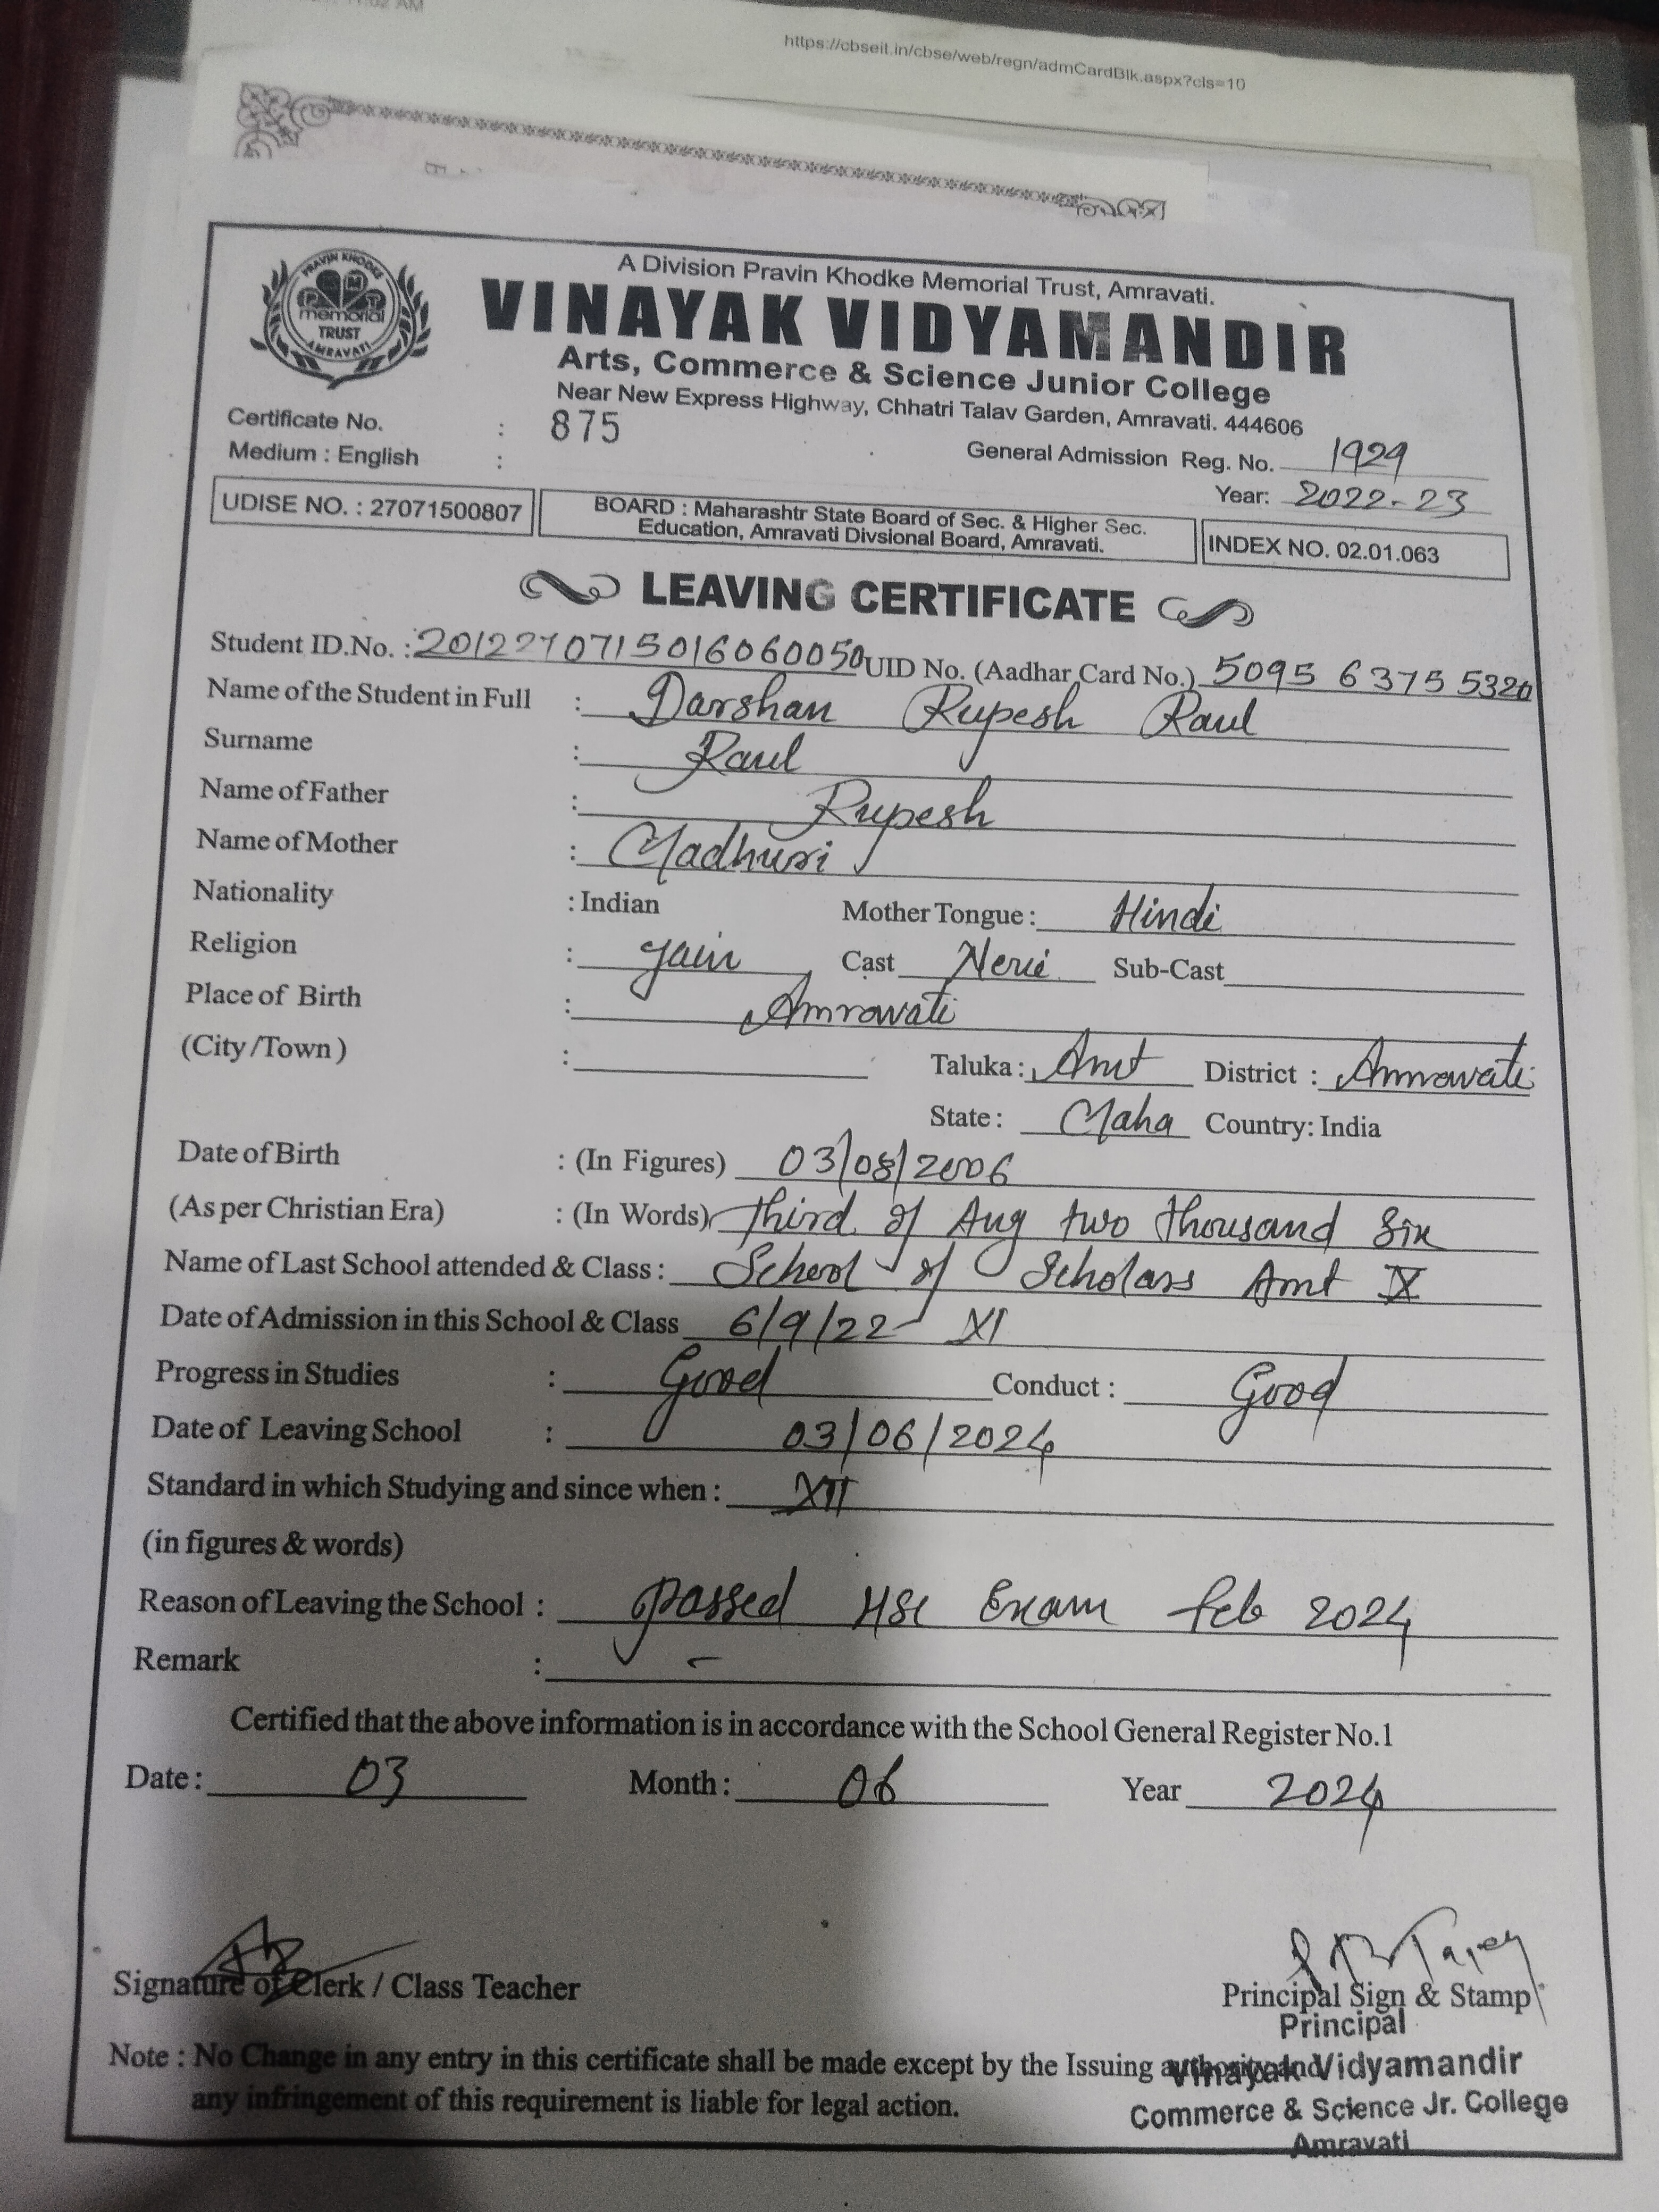 11:02 AM
https://cbseit.in/cbse/web/regn/admCardBlk.aspx?cls=10
A Division Pravin Khodke Memorial Trust, Amravati.
VINAYAK VIDYAMANDIR
PRAVIN KHODKE
memorial
TRUST
AMRAVATI
Arts, Commerce & Science Junior College
Near New Express Highway, Chhatri Talav Garden, Amravati. 444606
Certificate No. : 875
Medium : English :
General Admission Reg. No. 1929
Year: 2022-23
UDISE NO. : 27071500807
BOARD : Maharashtr State Board of Sec. & Higher Sec.
Education, Amravati Divsional Board, Amravati.
INDEX NO. 02.01.063
LEAVING CERTIFICATE
Student ID.No. : 2012270715016060050 UID No. (Aadhar Card No.) 5095 6375 5320
Name of the Student in Full : Darshan Rupesh Raul
Surname : Raul
Name of Father : Rupesh
Name of Mother : Madhuri
Nationality : Indian Mother Tongue : Hindi
Religion : Jain Cast Cast Sub-Cast
Place of Birth : Amrawati
(City /Town ) : Taluka : Amt District : Amrawati
State : Maha Country: India
Date of Birth : (In Figures) 03/08/2006
(As per Christian Era) : (In Words) Third of Aug two thousand Six
Name of Last School attended & Class : School of Scholars Amt X
Date of Admission in this School & Class 6/9/22 XI
Progress in Studies : Good Conduct : Good
Date of Leaving School : 03/06/2024
Standard in which Studying and since when : XII
(in figures & words)
Reason of Leaving the School : passed HSC Exam feb 2024
Remark : -
Certified that the above information is in accordance with the School General Register No.1
Date : 03 Month : 06 Year 2024
Signature of Clerk / Class Teacher
Principal Sign & Stamp
Principal
Note : No Change in any entry in this certificate shall be made except by the Issuing authority and
Vinayak Vidyamandir
any infringement of this requirement is liable for legal action.
Commerce & Science Jr. College
Amravati